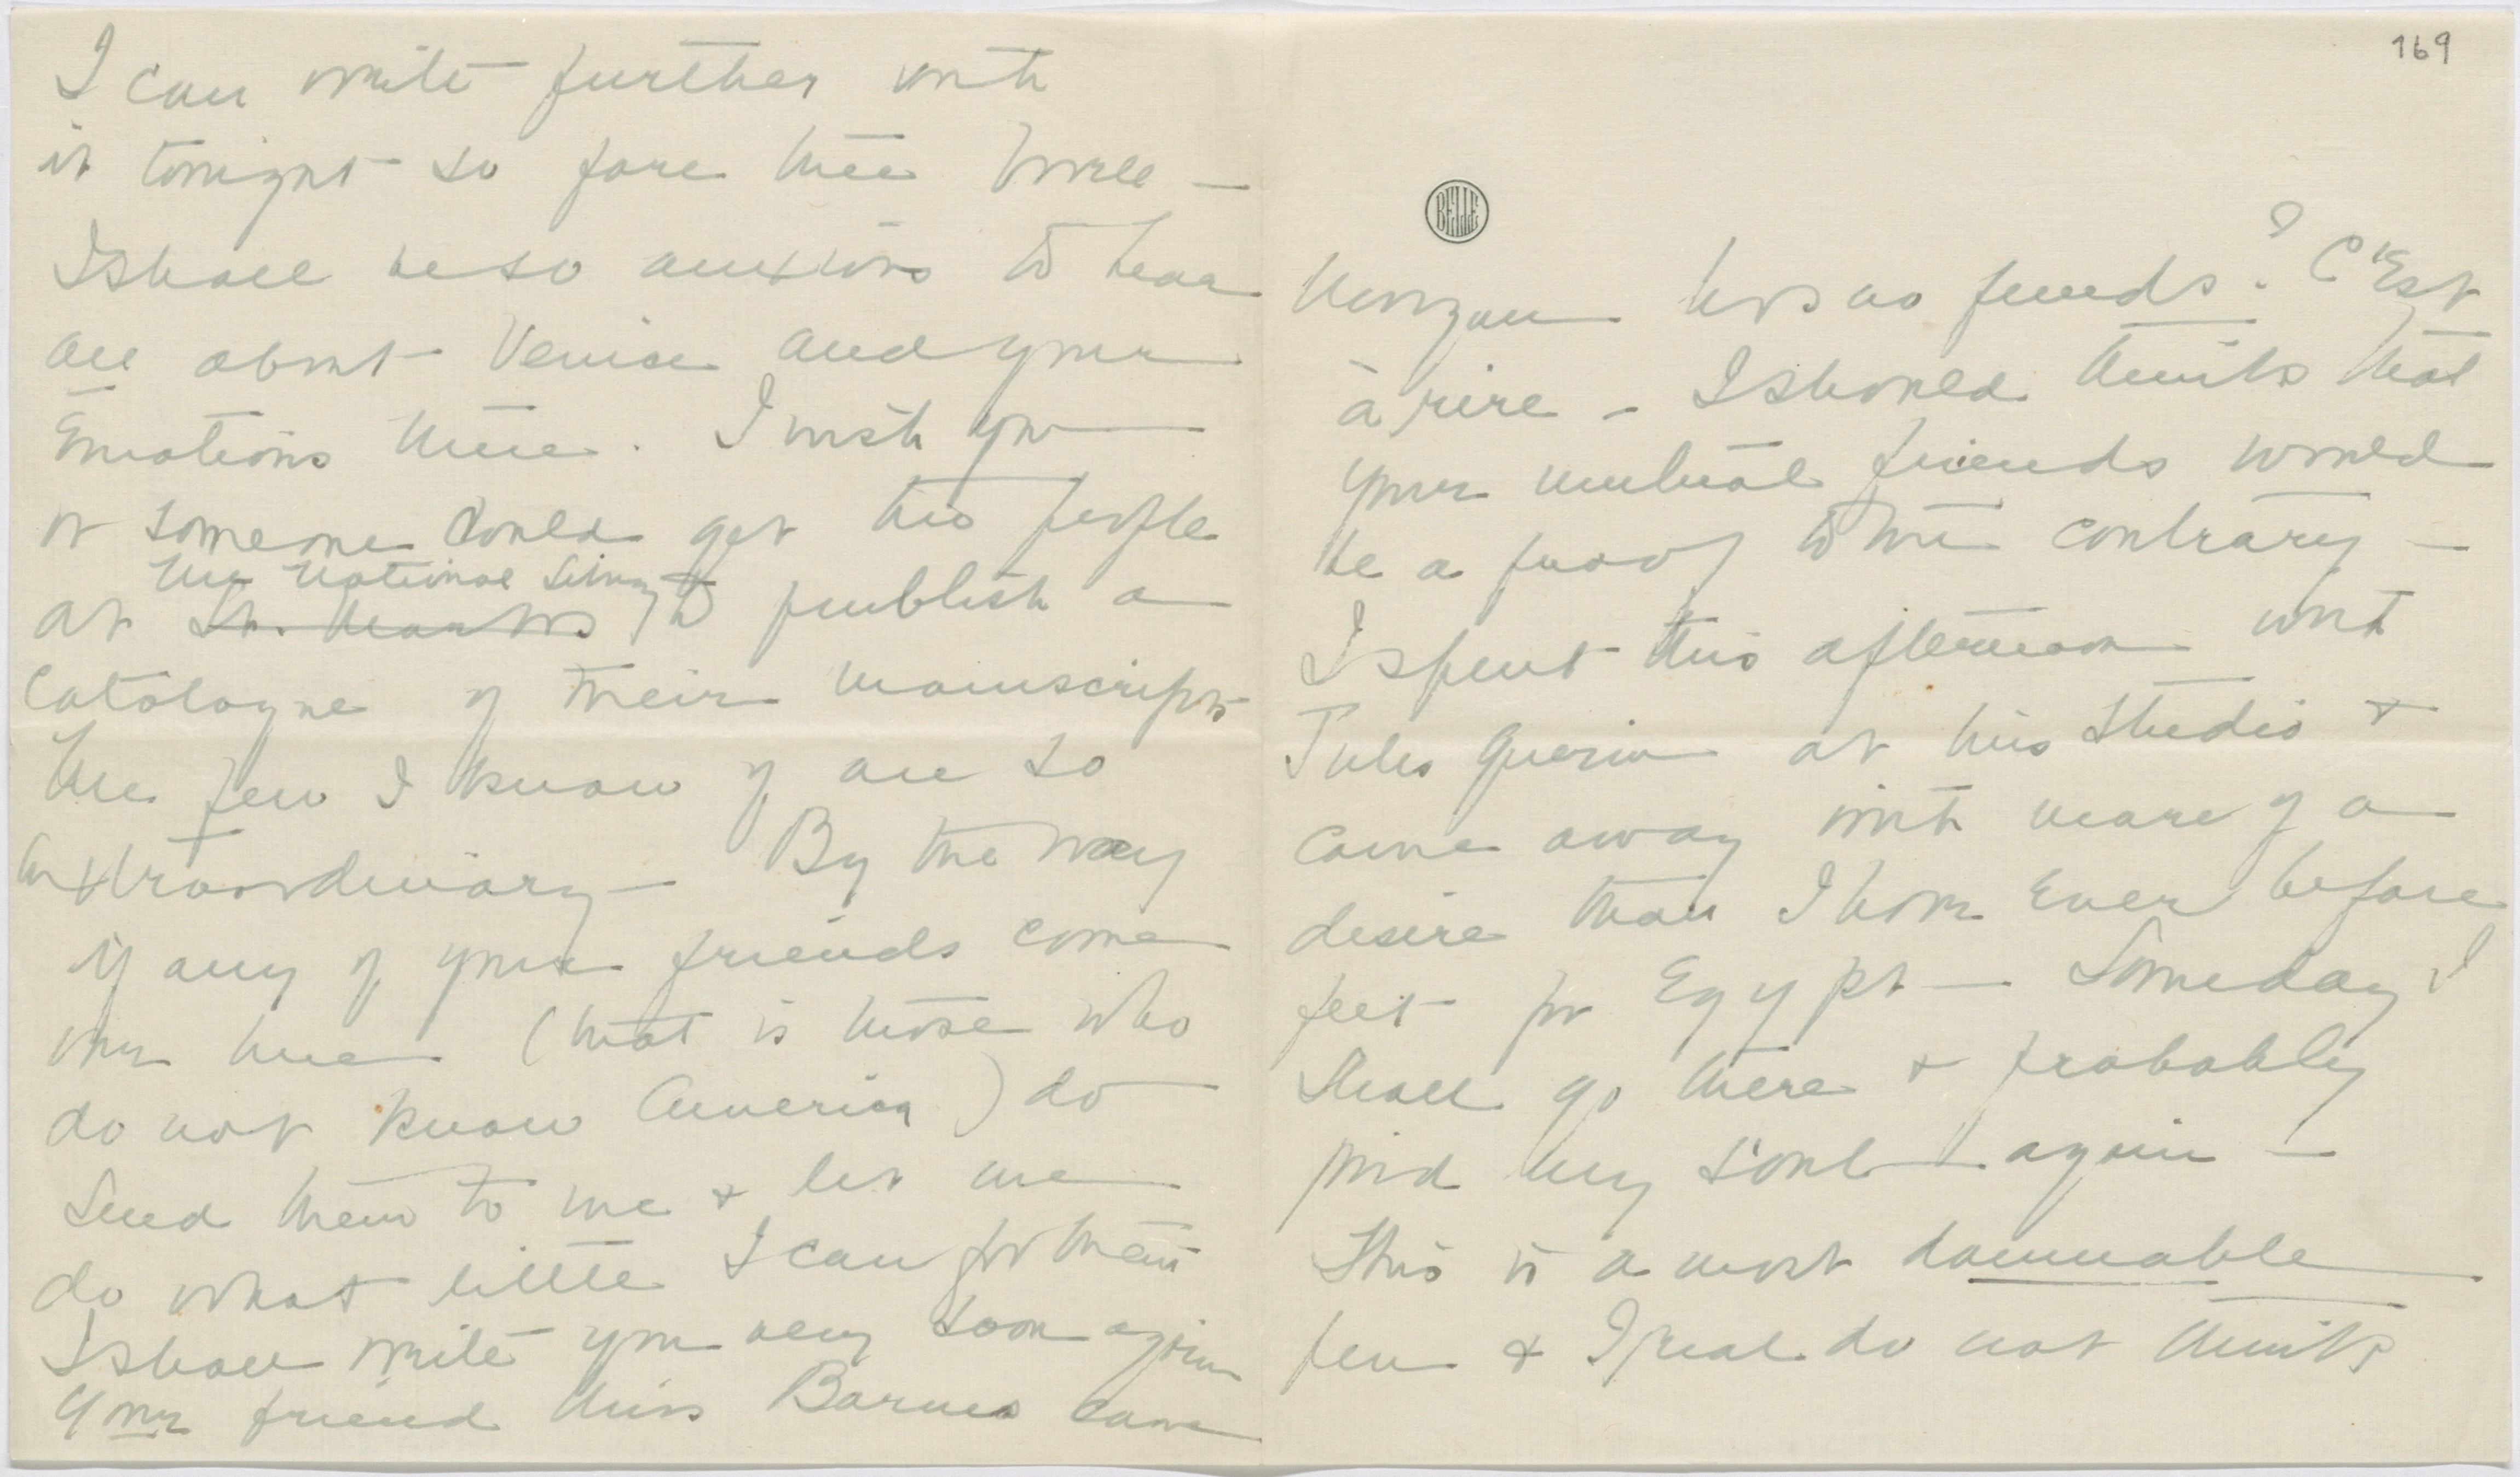 I can write further with
it tonight so fare thee well —
I shall be so anxious to hear
all about Venice and your
Emotions there. I wish you
or someone could get the people
the National Library
at St. Marks to publish a
catalogue of their manuscripts
The few I know of are so
Extraordinary — By the way
if any of your friends come
over here (that is those who
do not know America) do
send them to me & let me
do what little I can for them
I shall write you very soon again
Your friend Miss Barnes came
169
BELLE
Morgan has no friends? C'Est
à rire — I should think that
your mutual friends would
be a proof to the contrary —
I spent this afternoon with
Jules Guerin at his studio &
came away with more of a
desire than I have Ever before
felt for Egypt — Someday I
shall go there & probably
find my soul again —
This is a most damnable
pen & I real do not think